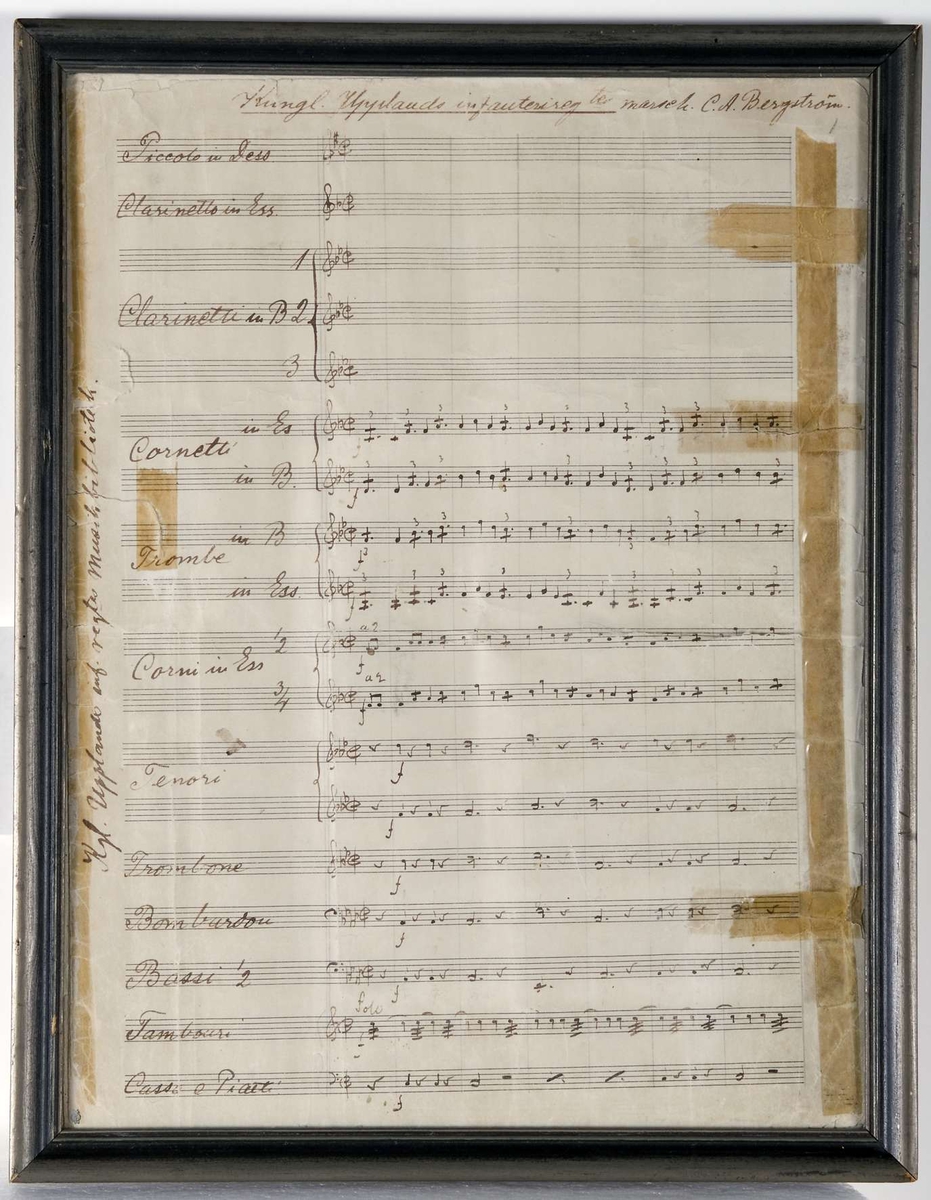 Kungl. Upplands infanteriregtes marsch. C. A. Bergström.
1
Piccolo in Dess
Clarinetto in Ess.
1
Clarinetti in B 2
3
in Es
Cornetti
in B.
in B
Trombe
in Ess
1/2
Corni in Ess
3/4
Tenori
Trombone
Bombardon
Bassi 1/2
Solo
Tambouri
Cassa e Piatti
Kgl. Upplands inf. regtes Musikbibliotek.
a 2
a 2